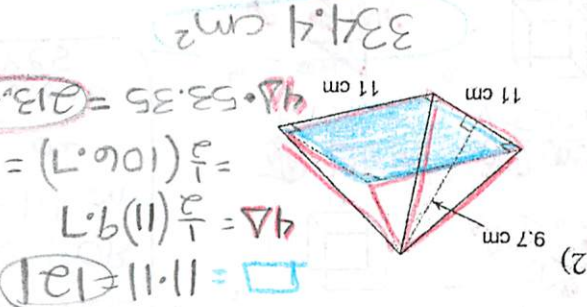 2)
9.7 cm
11 cm
11 cm
= 11·11 = 121
4△ = 1/2 (11) 9.7
= 1/2 (106.7) =
4△ · 53.35 = 213.
334.4 cm²